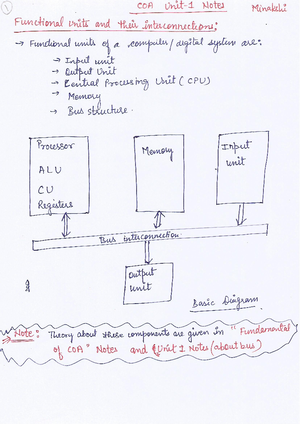 ① COA Unit-1 Notes Minakshi
Functional Units and their interconnections:
→ Functional units of a computer/digital system are:
→ Input unit
→ Output Unit
→ Central Processing Unit (CPU)
→ Memory
→ Bus structure.
Processor
ALU
CU
Registers
Memory
Input
unit
Bus interconnection
Output
unit
Basic Diagram
Note: Theory about these components are given in "Fundamental
of COA" Notes and Unit 1 Notes (about bus)